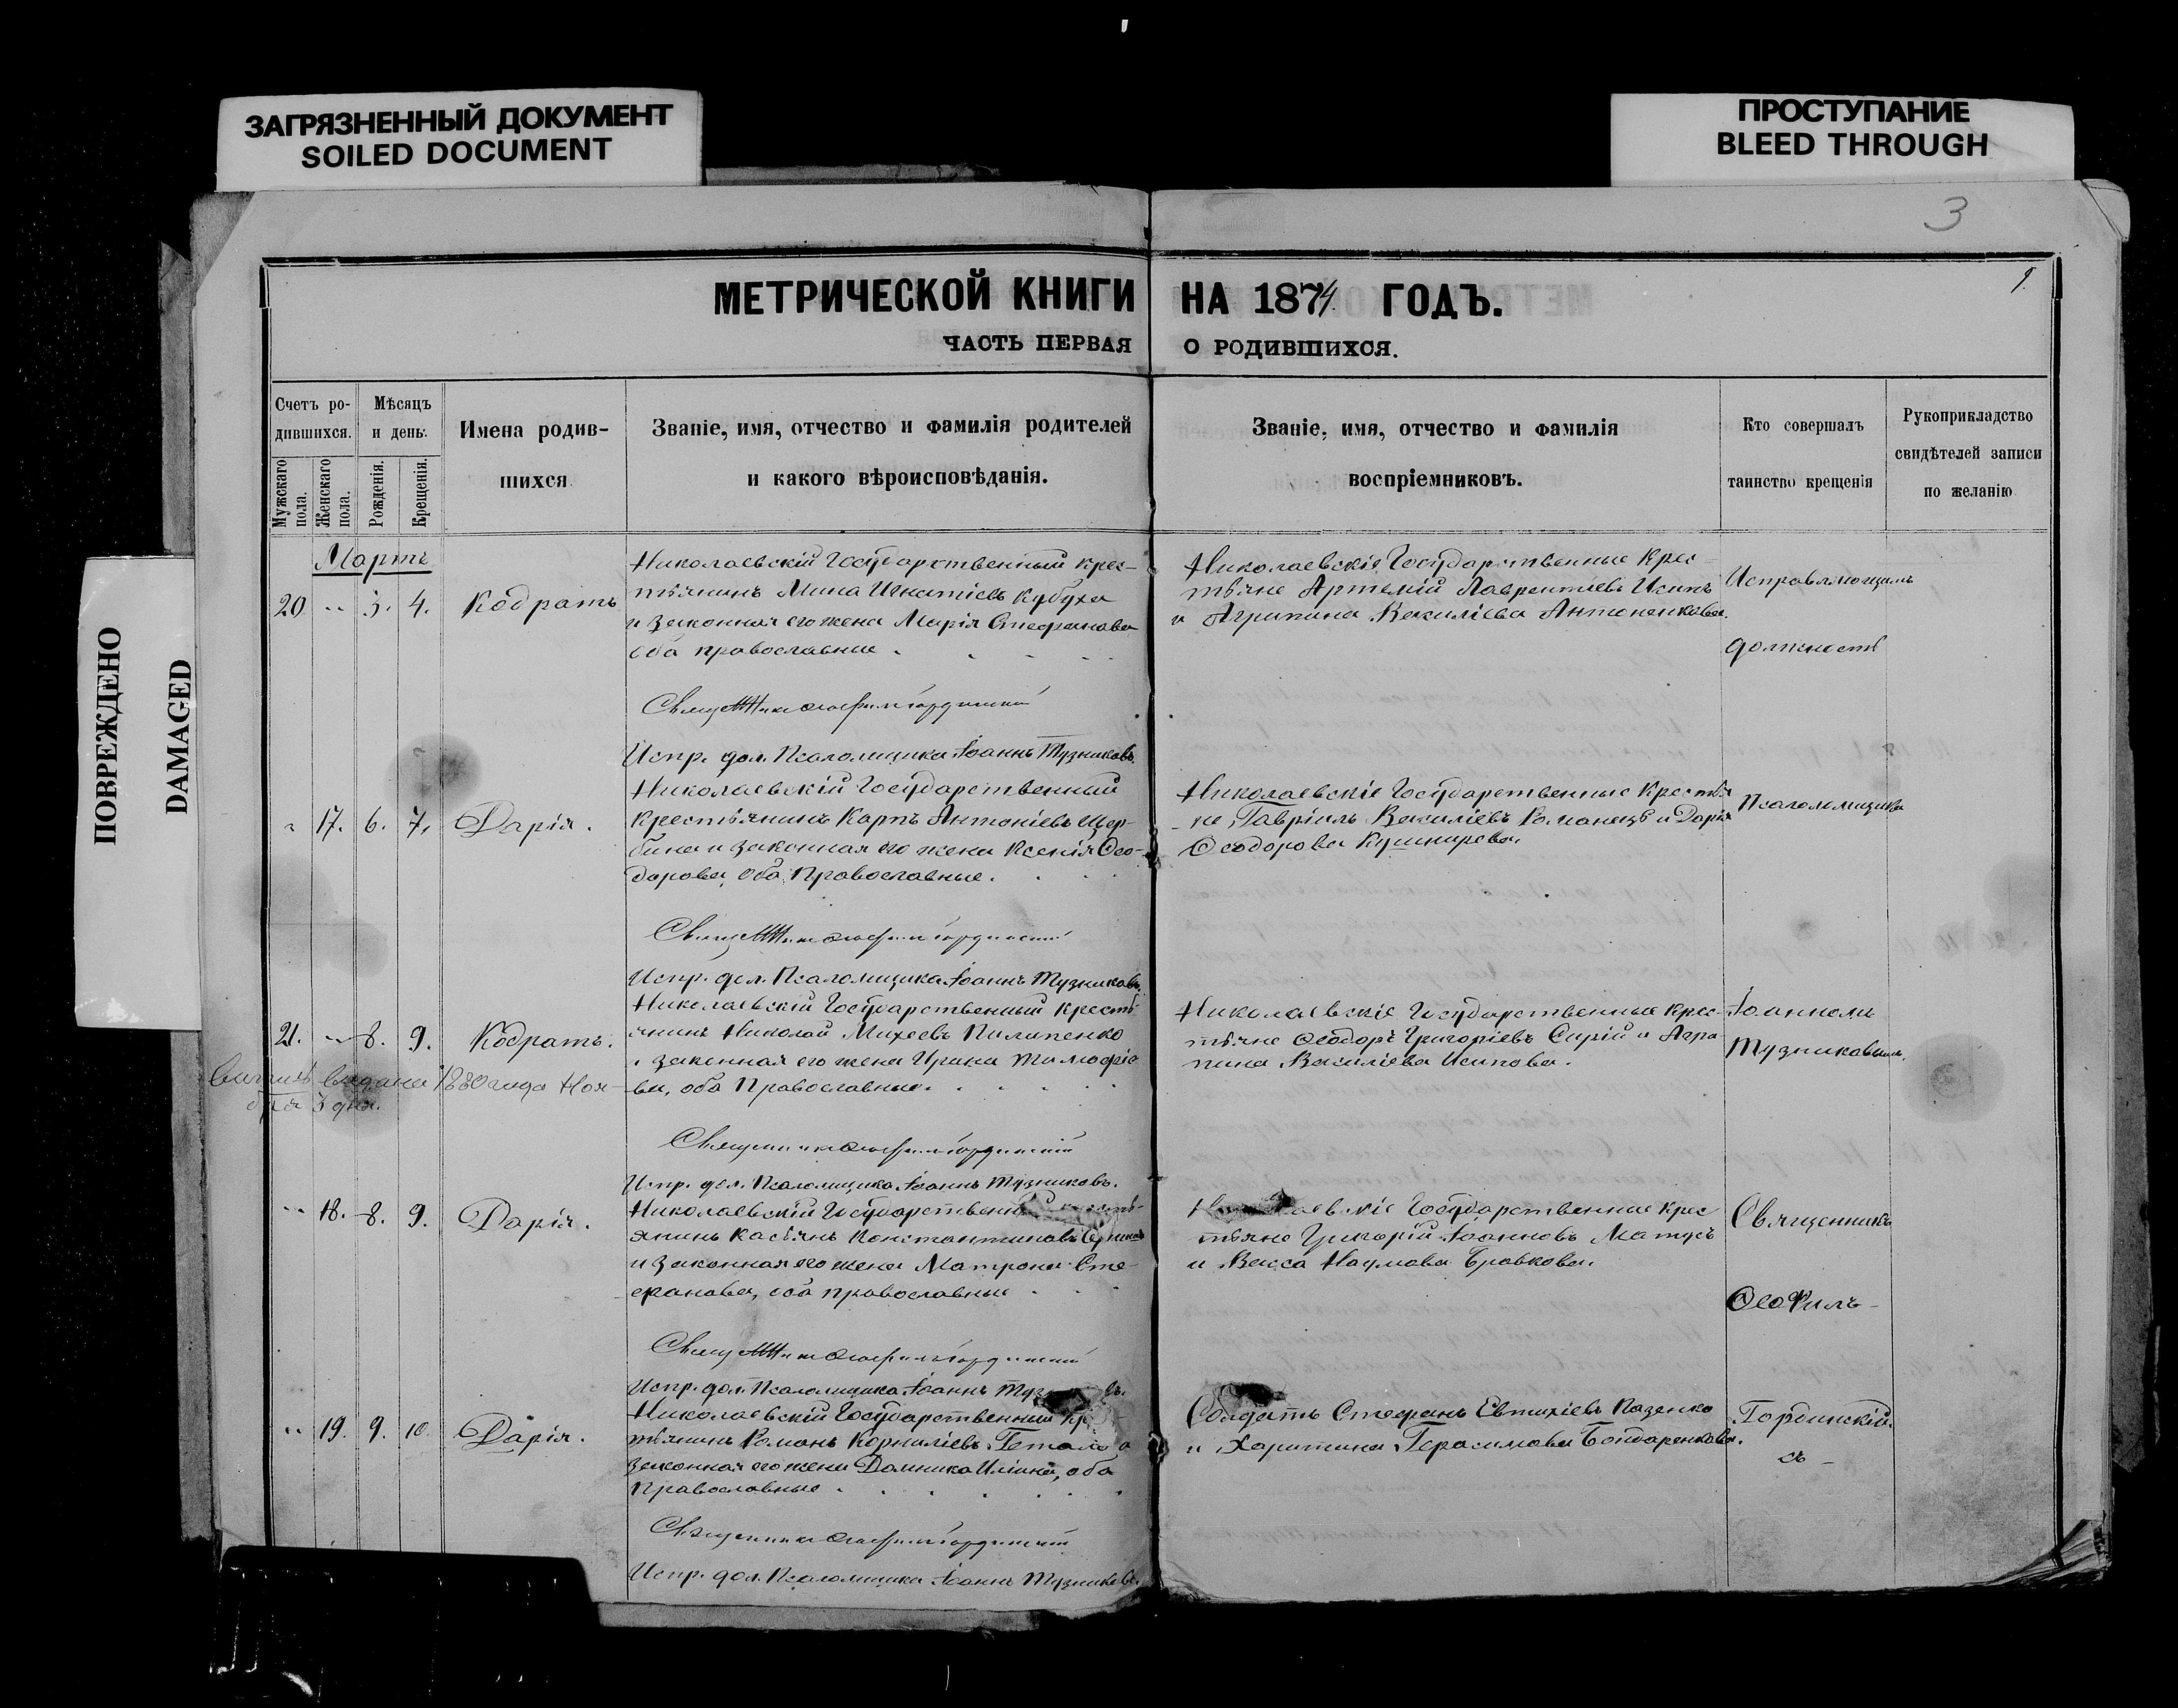 ЗАГРЯЗНЕННЫЙ ДОКУМЕНТ
SOILED DOCUMENT
ПРОСТУПАНИЕ
BLEED THROUGH
ПОВРЕЖДЕНО
DAMAGED
3
МЕТРИЧЕСКОЙ КНИГИ НА 1874 ГОДЪ.
ЧАСТЬ ПЕРВАЯ О РОДИВШИХСЯ.
Счетъ ро-
дившихся.
Мужскаго пола.
Женскаго пола.
Мѣсяцъ
и день.
Рожденія.
Крещенія.
Имена родив-
шихся
Званіе, имя, отчество и фамилія родителей
и какого вѣроисповѣданія.
Званіе, имя, отчество и фамилія
воспріемниковъ.
Кто совершалъ
таинство крещенія
Рукоприкладство
свидѣтелей записи
по желанію
Мартъ
20 " 3. 4. Кодратъ
Николаевскій Государственный крес-
тьянинъ Мина Игнатіевъ Кубуха
и законная его жена Марія Стефанова
оба православные
Николаевскіе Государственные Крес-
тьяне Артемій Лаврентіевъ Исипъ
и Агрипина Василіева Антоненкова.
Исправляющимъ
должность
Испр. дол. Псаломщика Іоаннъ Тузниковъ.
" 17. 6. 7. Дарія.
Николаевскій Государственный
крестьянинъ Карпъ Антоніевъ Щер-
бина и законная его жена Ксенія Ѳео-
дорова, оба Православные.
Николаевскіе Государственные крестья
-не, Гавріилъ Василіевъ Романецъ и Дарія
Ѳеодорова Кушнирева.
Псаломщика
Испр. дол. Псаломщика Іоаннъ Тузниковъ.
21. " 8. 9. Кодратъ.
Николаевскій Государственный кресть
янинъ Николай Михеевъ Пилипенко
и законная его жена Ирина Тимофіе
ва, оба Православные.
Николаевскіе Государственные крес-
тьяне Ѳеодоръ Григоріевъ Сирій и Агри
пина Василіева Исипова.
Іоанномъ
Тузниковымъ.
выдана 1880 года Ноя-
бря 3 дня.
Испр. дол. Псаломщика Іоаннъ Тузниковъ.
" 18. 8. 9. Дарія.
Николаевскій Государственный кресть-
янинъ Касьянъ Константиновъ
и законная его жена Матрона Сте-
фанова, оба православные
Государственные крес
тьяне Григорій Іоанновъ Матусъ
и Васса Наумова Бровкова.
Священникъ
Ѳеофилъ
Испр. дол. Псаломщика Іоаннъ
" 19. 9. 10. Дарія.
Николаевскій Государственный
тьянинъ Романъ Корниліевъ
законная его жена Домника Иліина, оба
Православные
Солдатъ Стефанъ Евтихіевъ Пазенко
и Харитина Герасимова Бондаренкова.
Гординскій
съ
Испр. дол. Псаломщика Іоаннъ Тузниковъ.